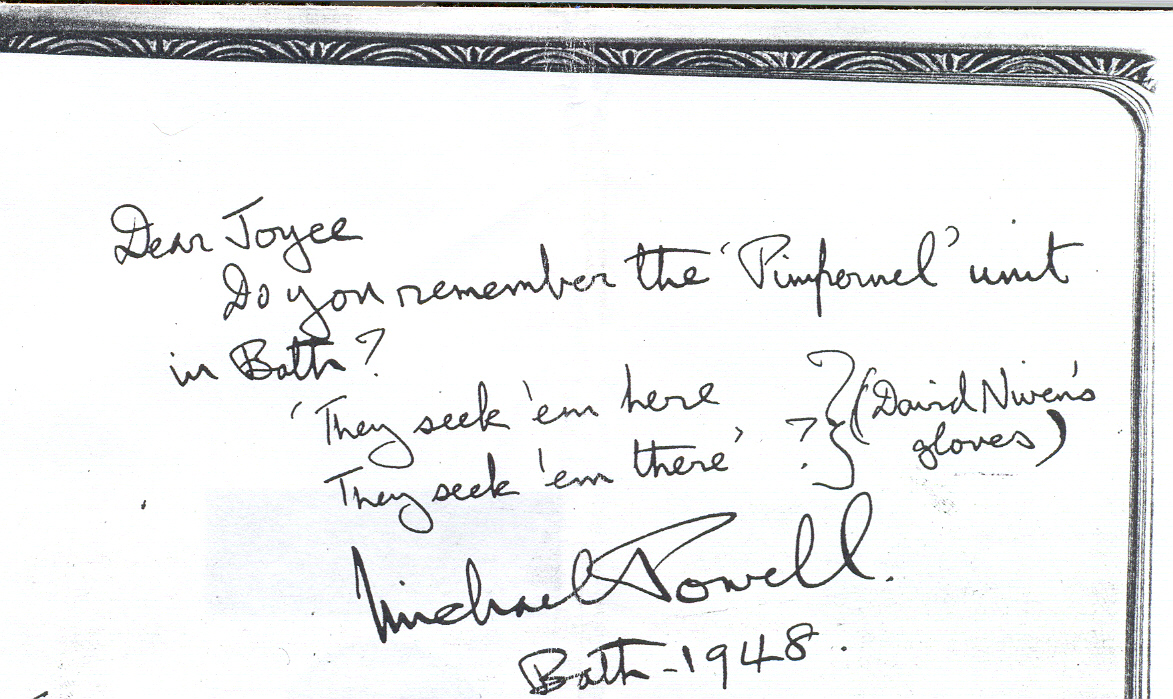 Dear Joyce
Do you remember the 'Pimpernel' unit
in Bath?
'They seek 'em here
They seek 'em there' ? } (David Niven's
gloves)
Michael Powell.
Bath - 1948.